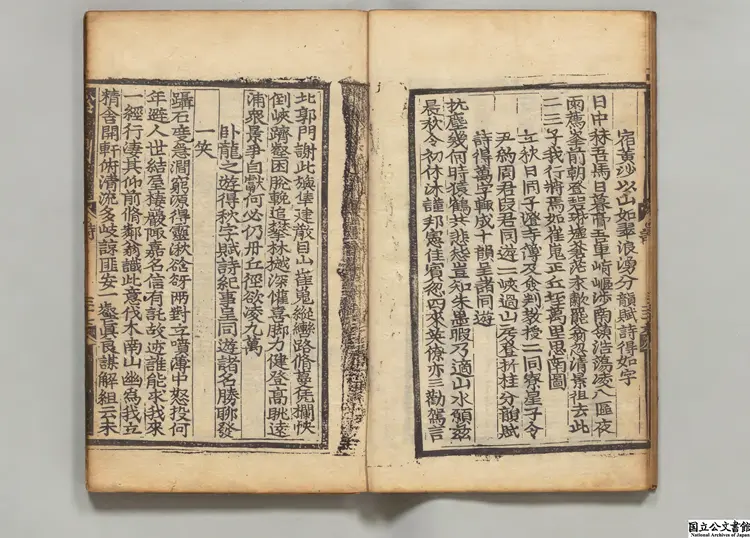 宿黃沙以山如翠浪湧分韻賦詩得如字
日中秣吾馬日暮膏吾車崎嶇涉南嶺浩蕩凌八區夜
雨鵞峯前朝登翠壚蒼茫罷翕忽清景徂去此
二三子我行將焉如崔嵬正丘垤萬里思南圖
立秋日同子澄寺簿及僉判教授二同寮星子令
尹約周君段君同遊三峽過山房登折桂分韻賦
詩得萬字輒成十韻呈諸同遊
抗塵幾何時猿鶴共悲怨豈知朱墨暇乃適山水願茲
晨秋令初休沐謹邦憲佳賓忽四來英僚亦三勸駕言
北郭門謝此旟隼建散目山崔嵬縱轡路脩蔓凭欄快
倒峽躋壑困脫輓追攀林樾深懽喜脚力健登高眺遠
浦衆景爭自獻何必仍丹丘徑欲凌九萬
臥龍之遊得秋字賦詩紀事呈同遊諸名勝聊發
一笑
躡石度急澗窮源得靈湫谽谺兩對立噴薄中怒投何
年避人世結屋棲巖陬嘉名信有託故迹誰能求我來
一經行凄其仰前脩鄰翁識此意伐木南山幽爲我立
精舍開軒俯清流多岐諒匪安一壑眞良謀解組云未
国立公文書館
National Archives of Japan